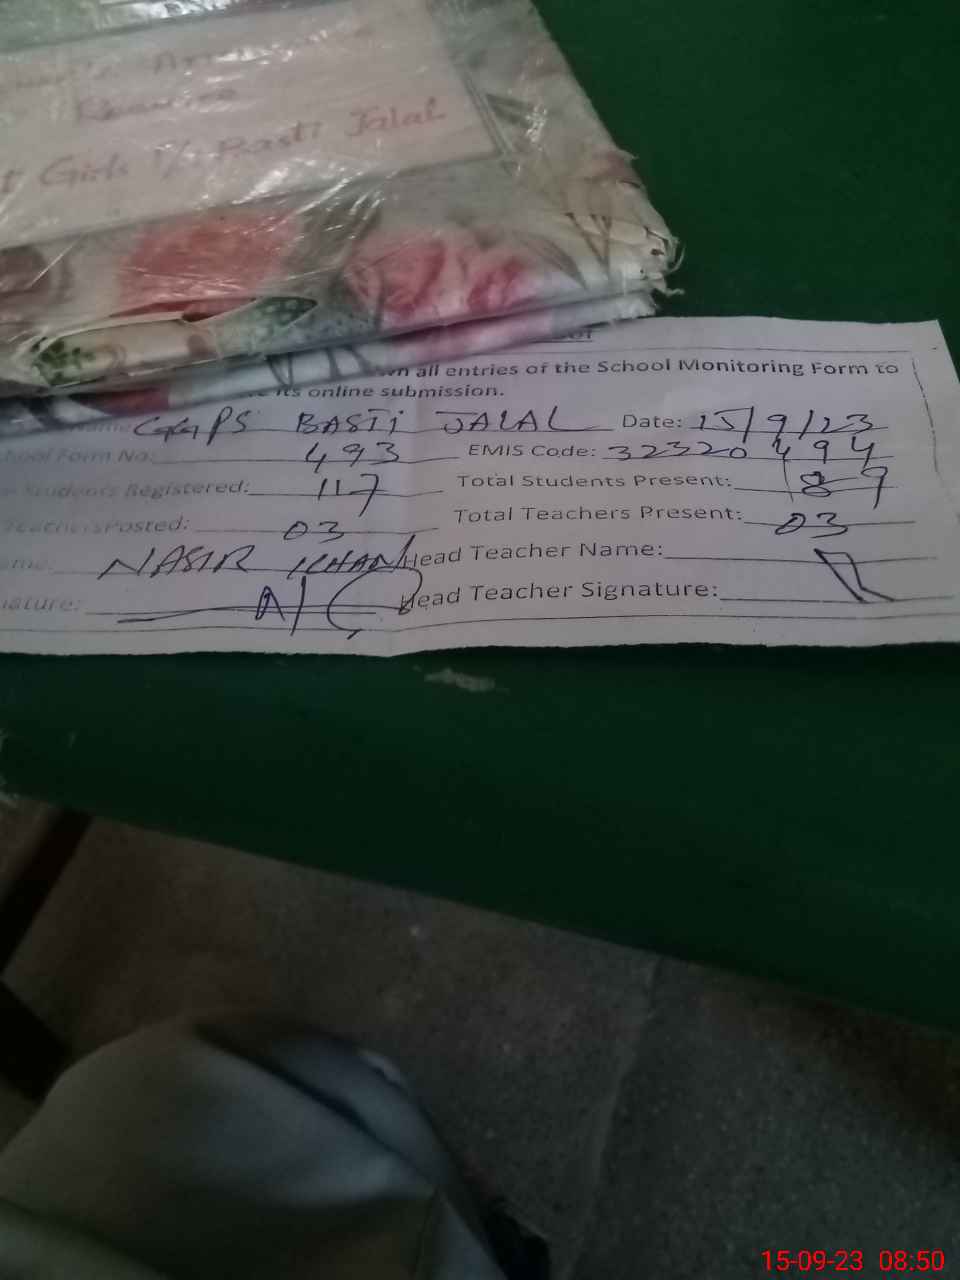 Girls P/S Basti Jalal
all entries of the School Monitoring Form to
its online submission.
GGPS BASTI JALAL Date: 15/9/23
School Form No: 493 EMIS Code: 32320494
Students Registered: 117 Total Students Present: 89
Teachers Posted: 03 Total Teachers Present: 03
NASIR KHAN Head Teacher Name:
Head Teacher Signature:
15-09-23 08:50